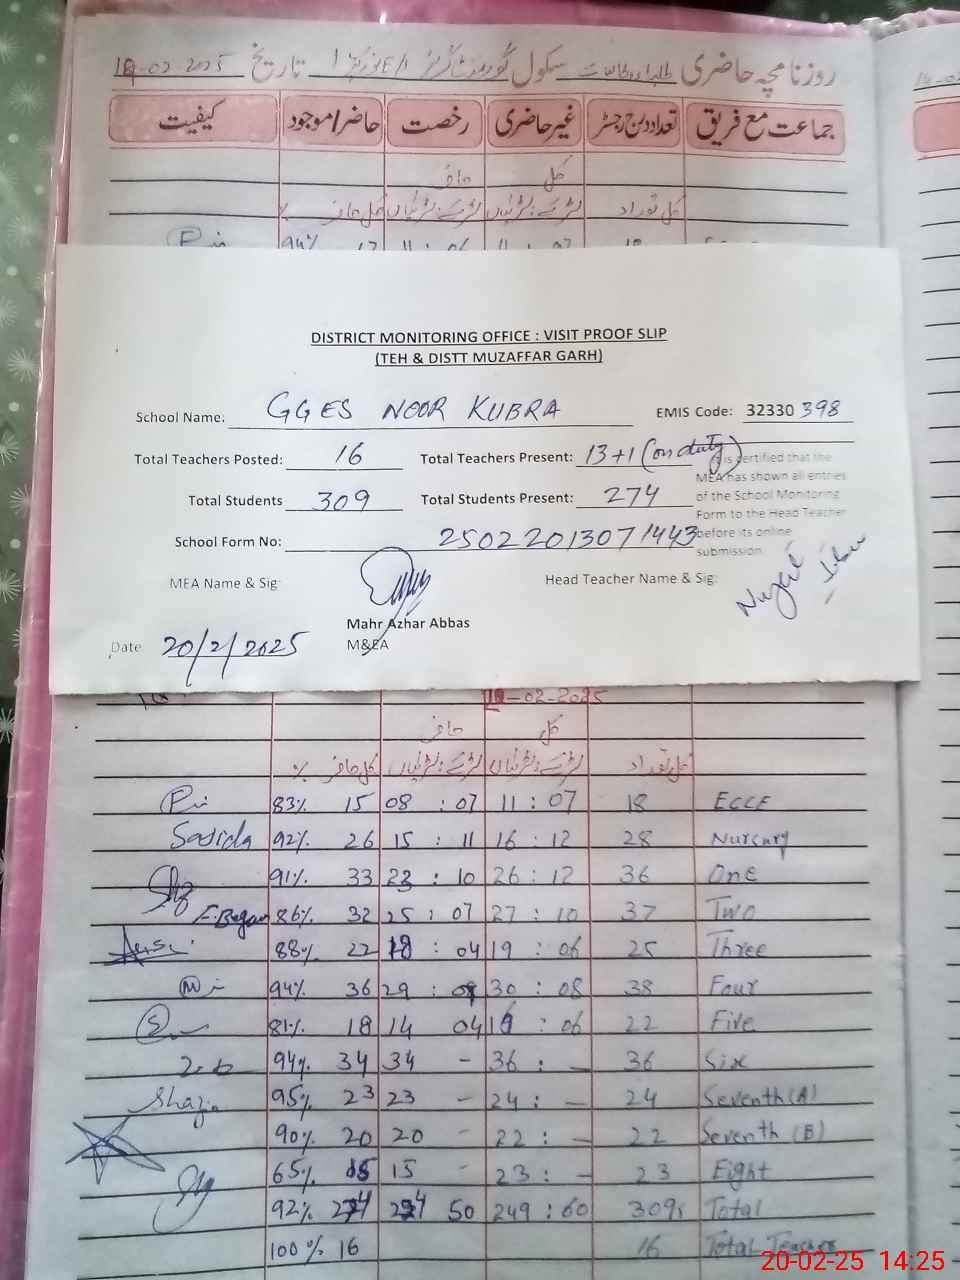 روزنامچہ حاضری طلباء و طالبات سکول گورنمنٹ گرلز تاریخ 19-02-2025
جماعت مع فریق تعداد درج رجسٹر غیر حاضری رخصت حاضر/موجود کیفیت
کل حاضر
کل تعداد لڑکے : لڑکیاں لڑکے : لڑکیاں کل حاضر %
94% 17 11 : 06 11 : 07 18
DISTRICT MONITORING OFFICE : VISIT PROOF SLIP
(TEH & DISTT MUZAFFAR GARH)
School Name: GGES NOOR KUBRA EMIS Code: 32330 398
Total Teachers Posted: 16 Total Teachers Present: 13+1 (on duty)
Total Students 309 Total Students Present: 274
It is certified that the
MEA has shown all entries
of the School Monitoring
Form to the Head Teacher
before its online
submission
School Form No: 25022013071443
MEA Name & Sig: Head Teacher Name & Sig:
Mahr Azhar Abbas
M&EA
Date: 20/2/2025
-02-2025
کل حاضر
کل تعداد لڑکے : لڑکیاں لڑکے : لڑکیاں کل حاضر %
83% 15 08 : 07 11 : 07 18 ECCE
Sajida 92% 26 15 : 11 16 : 12 28 Nursary
91% 33 23 : 10 26 : 12 36 One
F.Begam 86% 32 25 : 07 27 : 10 37 Two
88% 22 18 : 04 19 : 06 25 Three
94% 36 29 : 30 : 08 38 Four
81% 18 14 04 : 06 22 Five
94% 34 34 - 36 : - 36 Six
Shazia 95% 23 23 - 24 : - 24 Seventh (A)
90% 20 20 - 22 : - 22 Seventh (B)
65% 15 15 - 23 : - 23 Eight
92% 274 224 50 249 : 60 309 Total
100% 16 16 Total Teachers
20-02-25 14:25